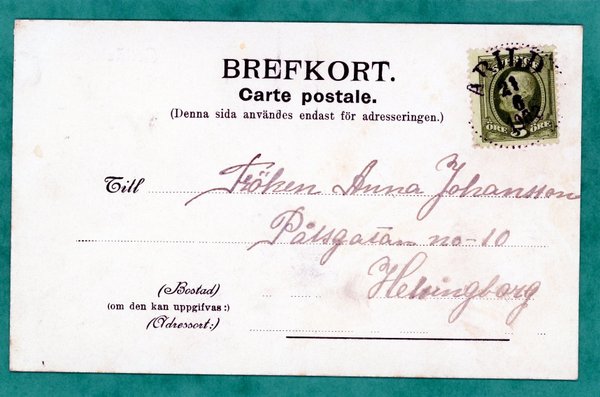 BREFKORT.
Carte postale.
(Denna sida användes endast för adresseringen.)
ARILD
21
6
5
ÖRE ÖRE
Till Fröken Anna Johansson
Pålsgatan no-10
Helsingborg
(Bostad)
(om den kan uppgifvas:)
(Adressort:)